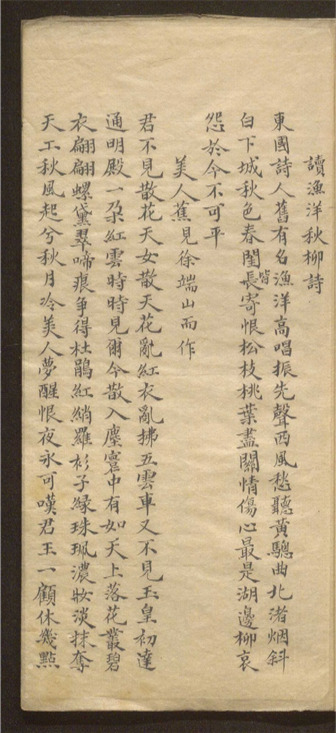 讀漁洋秋柳詩
東國詩人舊有名漁洋高唱振先聲西風愁聽黃驄曲北渚烟斜
白下城秋色春閨皆長寄恨松枝桃葉盡關情傷心最是湖邊柳哀
怨於今不可平
美人蕉見徐端山而作
君不見散花天女散天花亂紅衣亂拂五雲車又不見玉皇初達
通明殿一朶紅雲時時見爾今散入塵寰中有如天上落花叢碧
衣翩翩螺黛翠啼痕爭得杜鵑紅綃羅衫子綠珠珮濃妝淡抹奪
天工秋風起兮秋月冷美人夢醒恨夜永可嘆君王一顧休幾點